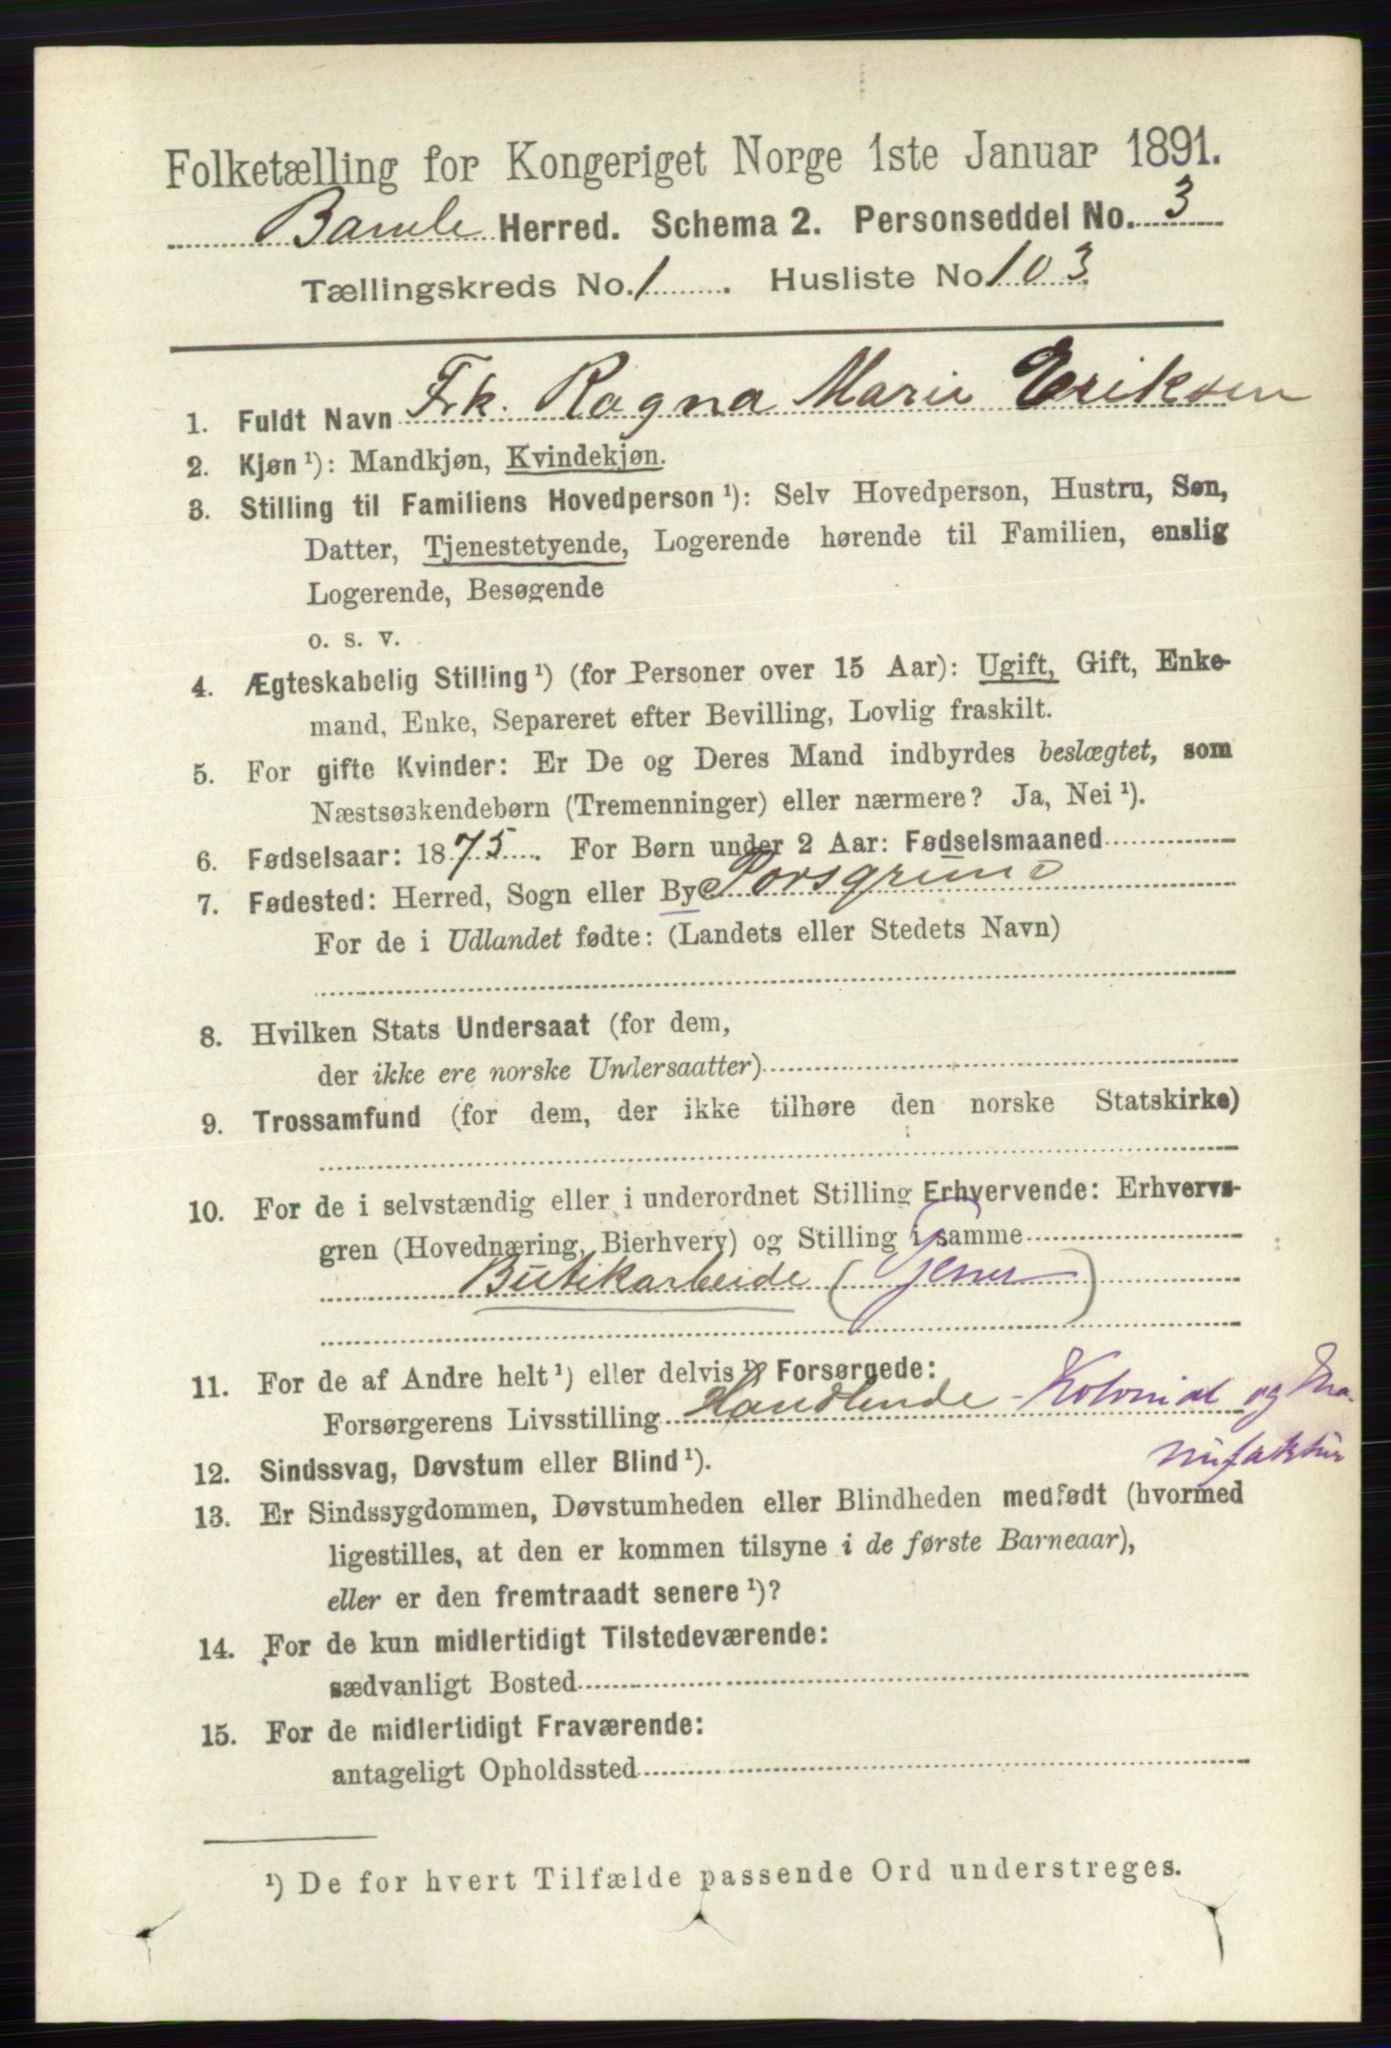 Folketælling for Kongeriget Norge 1ste Januar 1891.
Bamle Herred. Schema 2. Personseddel No. 3
Tællingskreds No. 1. Husliste No 103
1. Fuldt Navn Frk. Ragna Marie Eriksen
2. Kjøn ¹): Mandkjøn, Kvindekjøn.
3. Stilling til Familiens Hovedperson ¹): Selv Hovedperson, Hustru, Søn,
Datter, Tjenestetyende, Logerende hørende til Familien, enslig
Logerende, Besøgende
o. s. v.
4. Ægteskabelig Stilling ¹) (for Personer over 15 Aar): Ugift, Gift, Enke-
mand, Enke, Separeret efter Bevilling, Lovlig fraskilt.
5. For gifte Kvinder: Er De og Deres Mand indbyrdes beslægtet, som
Næstsøskendebørn (Tremenninger) eller nærmere? Ja, Nei ¹).
6. Fødselsaar: 1875. For Børn under 2 Aar: Fødselsmaaned
7. Fødested: Herred, Sogn eller By Porsgrund
For de i Udlandet fødte: (Landets eller Stedets Navn)
8. Hvilken Stats Undersaat (for dem,
der ikke ere norske Undersaatter)
9. Trossamfund (for dem, der ikke tilhøre den norske Statskirke)
10. For de i selvstændig eller i underordnet Stilling Erhvervende: Erhvervs-
gren (Hovednæring, Bierhverv) og Stilling i samme
Butikarbeide (Tjener)
11. For de af Andre helt ¹) eller delvis ¹) Forsørgede:
Forsørgerens Livsstilling Handlende - Kolonial og Ma-
nufaktur
12. Sindssvag, Døvstum eller Blind ¹).
13. Er Sindssygdommen, Døvstumheden eller Blindheden medfødt (hvormed
ligestilles, at den er kommen tilsyne i de første Barneaar),
eller er den fremtraadt senere ¹)?
14. For de kun midlertidigt Tilstedeværende:
sædvanligt Bosted
15. For de midlertidigt Fraværende:
antageligt Opholdssted
¹) De for hvert Tilfælde passende Ord understreges.